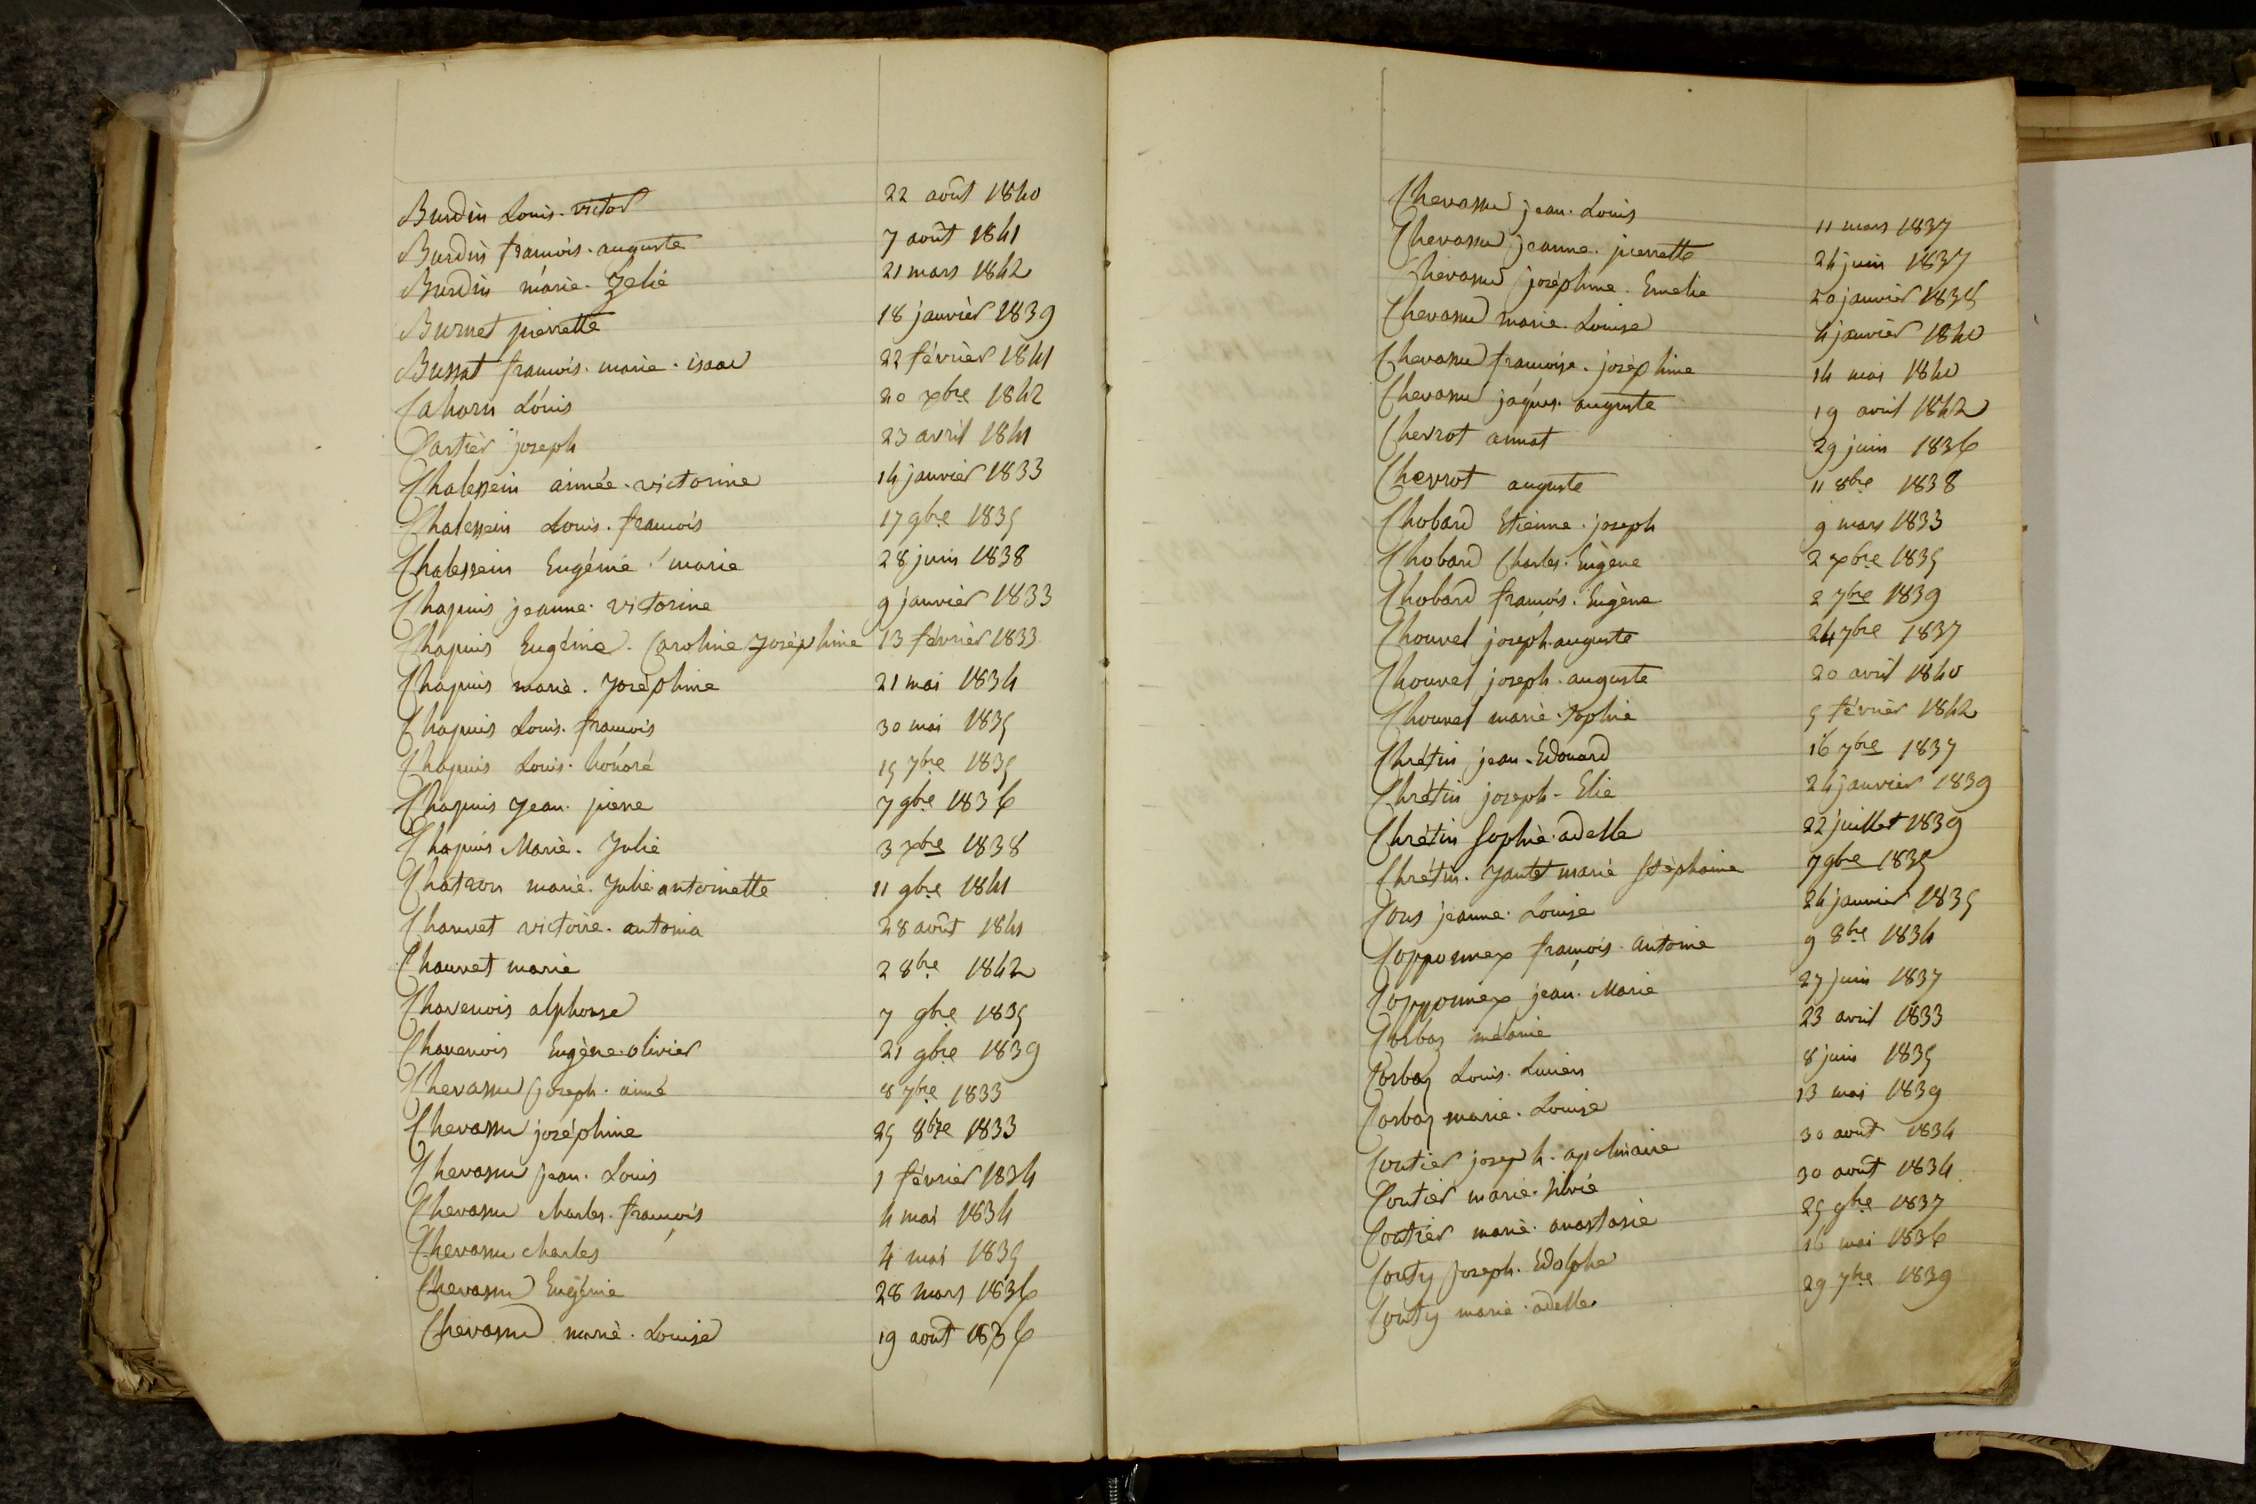 Burdin Louis. victor 22 août 1840
Burdin francois. auguste 7 août 1841
Burdin marie. Zelie 21 mars 1842
Burnet pierrette 18 janvier 1839
Bussat francois. marie. isaac 22 février 1841
Cahorn Louis 20 xbre 1842
Cartier joseph 23 avril 1841
Chalessein aimée. victorine 14 janvier 1833
Chalessein Louis. francois 17 9bre 1835
Chalessein Eugénie. marie 28 juin 1838
Chapuis jeanne. victorine 9 janvier 1833
Chapuis Eugénie. Caroline Joséphine 13 février 1833
Chapuis marie. Joséphine 21 mai 1834
Chapuis Louis. francois 30 mai 1835
Chapuis Louis. honoré 15 7bre 1835
Chapuis Jean. pierre 7 9bre 1836
Chapuis Marie. Julie 3 xbre 1838
Chatron marie. Julie antoinette 11 9bre 1841
Chauvet victoire. antonia 28 août 1841
Chauvet marie 2 8bre 1842
Chavenois alphonse 7 9bre 1835
Chavenois Eugène. olivier 21 9bre 1839
Chevassu joseph. aimé 8 7bre 1833
Chevassu joséphine 25 8bre 1833
Chevassu jean. Louis 1 février 1834
Chevassu charles. francois 4 mai 1834
Chevassu charles 4 mai 1835
Chevassu Eugénie 28 mars 1836
Chevassu marie. Louise 19 août 1836
Chevassu jean. Louis 11 mars 1837
Chevassu jeanne. pierrette 24 juin 1837
Chevassu joséphine. Emelie 20 janvier 1838
Chevassu marie. Louise 4 janvier 1840
Chevassu francoise. joséphine 14 mai 1840
Chevassu jaques. auguste 19 avril 1842
Chevrot annat 29 juin 1836
Chevrot auguste 11 8bre 1838
Chobard Etienne. joseph 9 mars 1833
Chobard Charles. Eugène 2 xbre 1835
Chobard francois. Eugène 2 7bre 1839
Chouvel joseph. auguste 24 7bre 1837
Chouvel joseph. auguste 20 avril 1840
Chouvel marie. Sophie 5 février 1842
Chrétin jean. Edouard 16 7bre 1837
Chrétin joseph. Elie 24 janvier 1839
Chrétin Sophie. adelle 22 juillet 1839
Chrétin. Jantet marie Stéphanie 7 9bre 1835
Cous jeanne. Louise 24 janvier 1835
Copponnex francois. antoine 9 8bre 1834
Copponnex jean. Marie 27 juin 1837
Corbaz mélanie 23 avril 1833
Corbaz Louis. Lucien 8 juin 1835
Corbaz marie. Louise 13 mai 1839
Coutier joseph. apolinaire 30 août 1834
Coutier marie. silvie 30 août 1834
Coutier marie. anastasie 25 9bre 1837
Couty joseph. Edolphe 16 mai 1836
Couty marie. adelle 29 7bre 1839